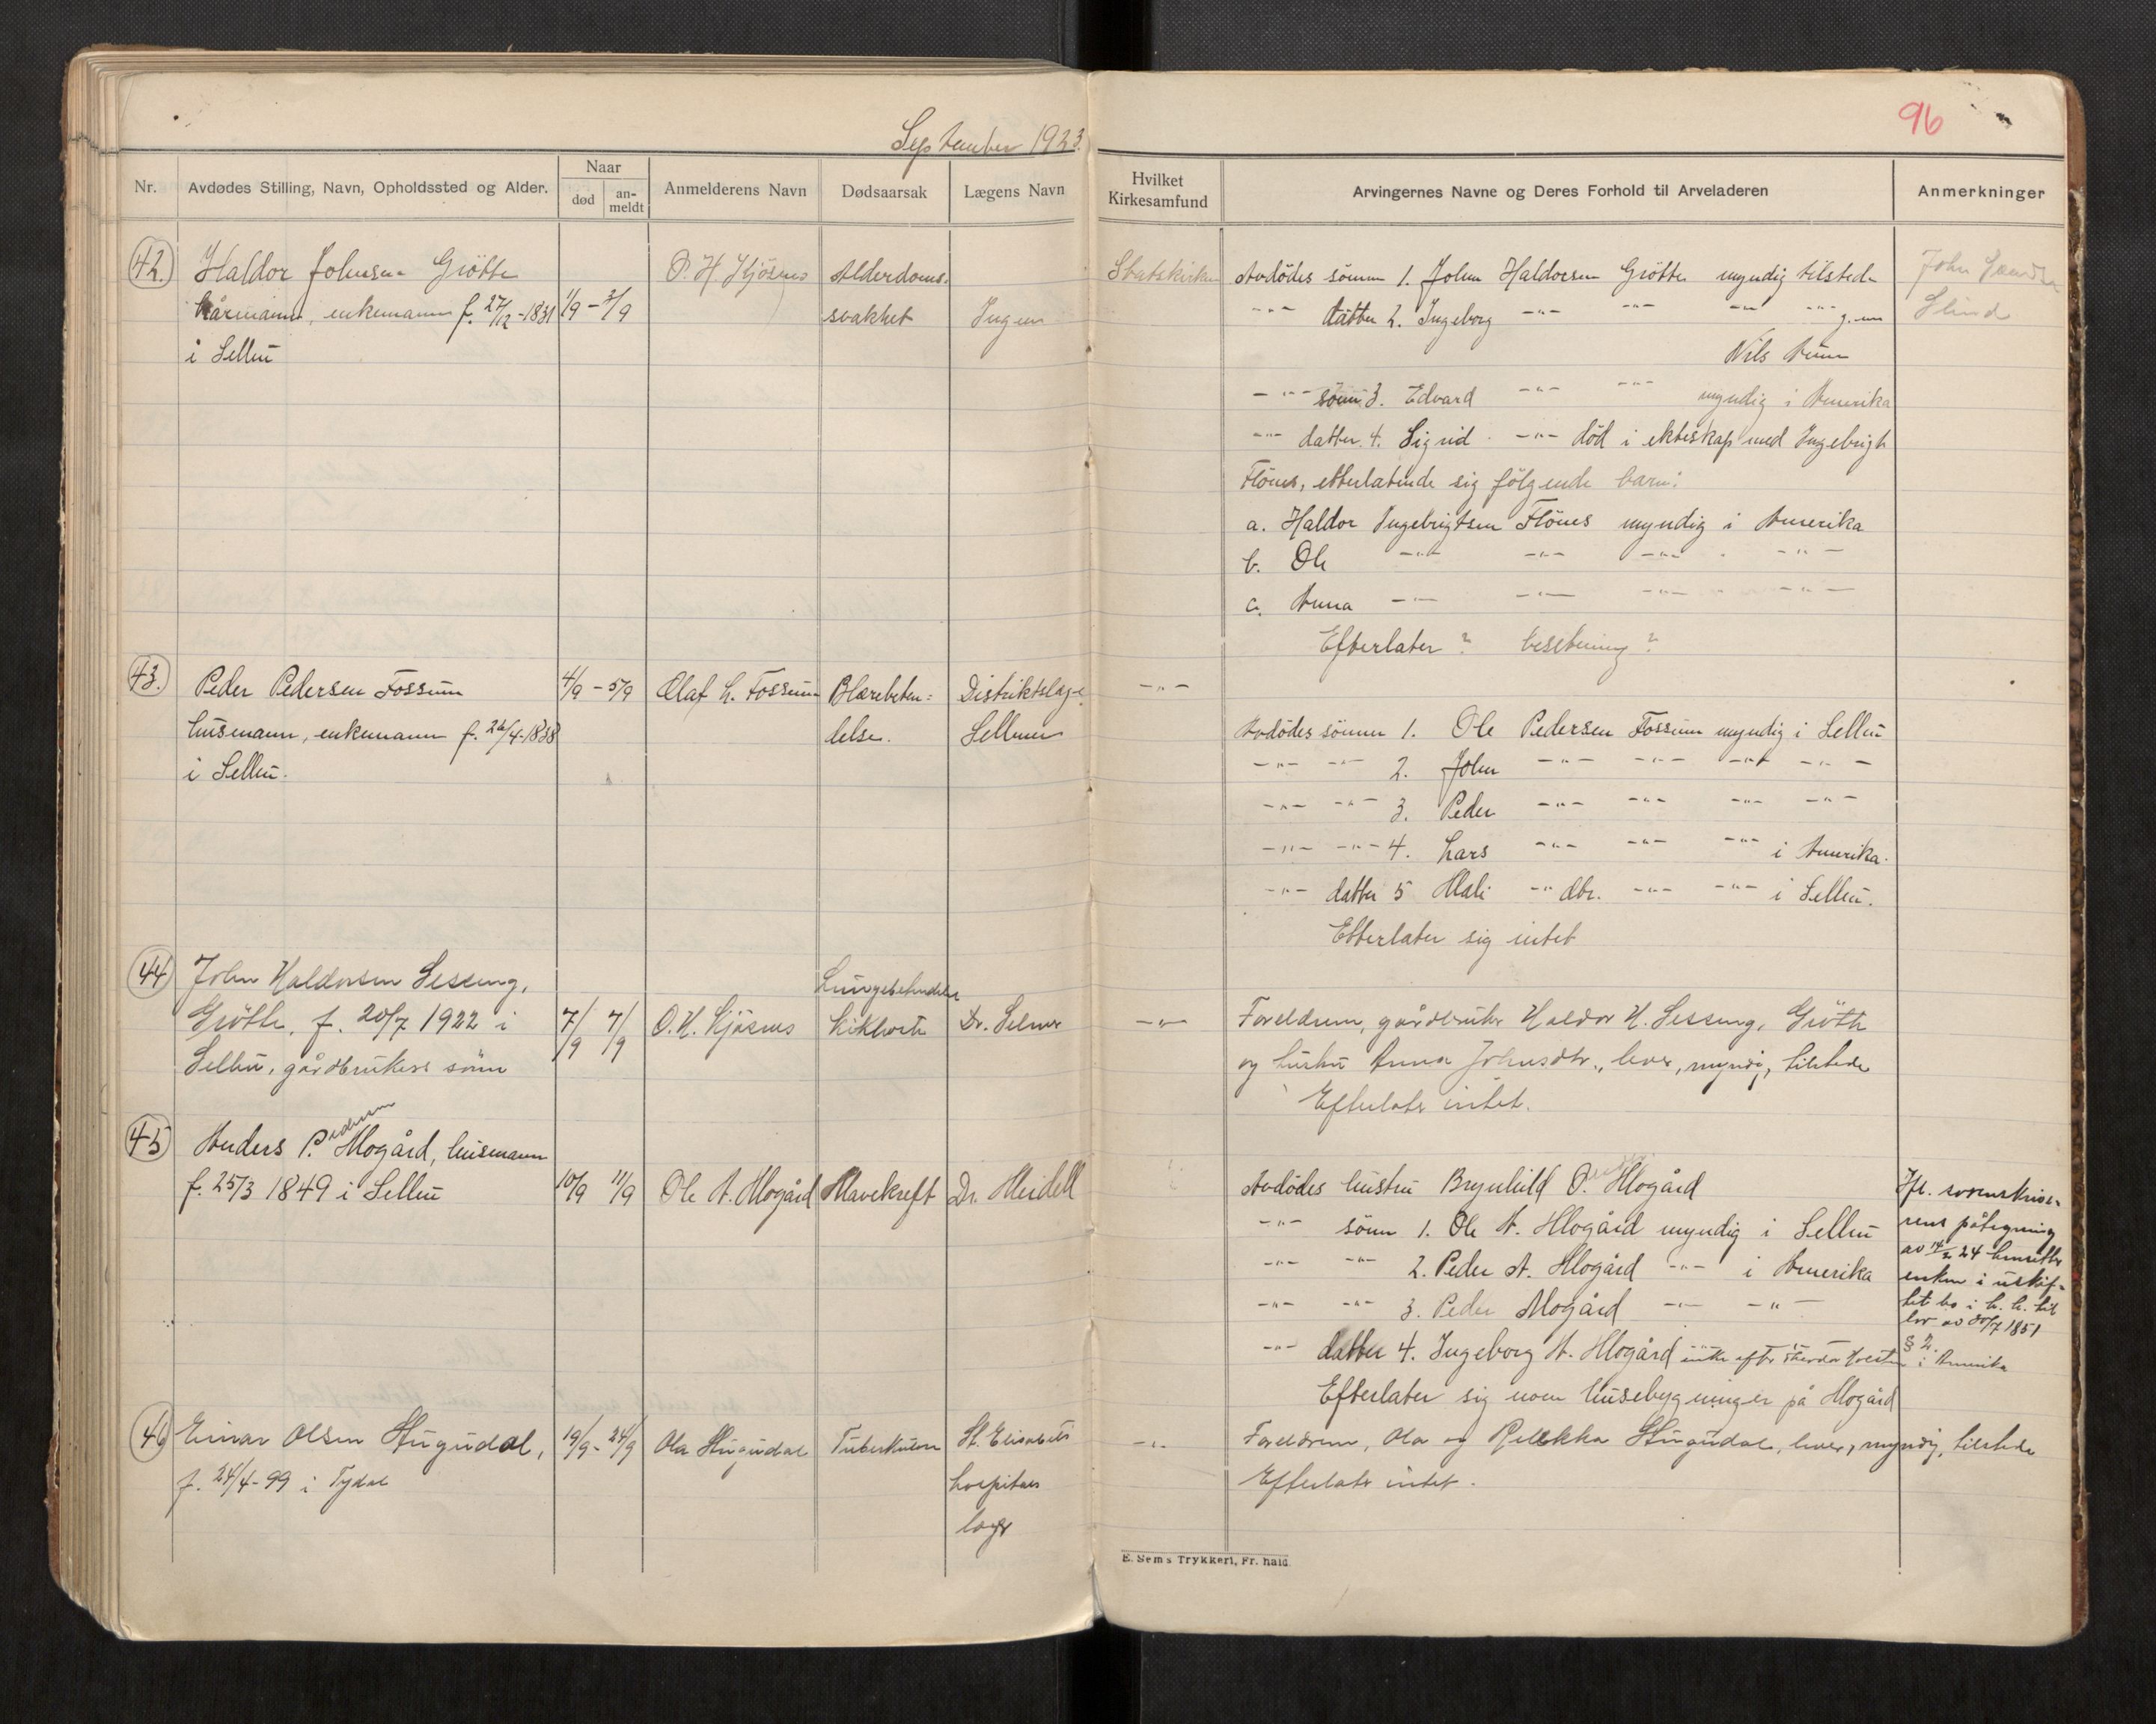 September 1923.
96
Nr.
Avdødes Stilling, Navn, Opholdssted og Alder.
Naar
død
an-
meldt
Anmelderens Navn
Dødsaarsak
Lægens Navn
Hvilket
Kirkesamfund
Arvingernes Navne og Deres Forhold til Arveladeren
Anmerkninger
42. Haldor Johnsen Grötte
kårmann, enkemann f. 27/12-1831
i Selbu
1/9 - 3/9
O. H. Kjösnes
Alderdoms-
svakhet
Ingen
Statskirken
Avdödes sönn 1. John Haldorsen Grötte myndig tilstede
-"- datter 2. Ingeborg -"- -"- -"- -"- g.m.
Nils
-"- sönn 3. Edvard -"- -"- myndig i Amerika
-"- datter 4. Sigrid -"- död i ekteskap med Ingebrigt
Flönes, etterlatende sig fölgende barn:
a. Haldor Ingebrigtsen Flönes myndig i Amerika
b. Ole -"- -"- -"- -"-
c. Anna -"- -"- -"- -"-
Efterlater ? besetning ?
John
Slind
43. Peder Pedersen Fossum
husmann, enkemann f. 26/4-1838
i Selbu.
4/9 - 5/9
Olaf L. Fossum
Blærebeten=
delse.
Distriktslæge
Sellmer
-"-
Avdödes sönner 1. Ole Pedersen Fossum myndig i Selbu
-"- -"- 2. John -"- -"- -"- -"-
-"- -"- 3. Peder -"- -"- -"- -"-
-"- -"- 4. Lars -"- -"- -"- i Amerika.
-"- datter 5 Mali -"- dtr. -"- -"- i Selbu.
Etterlater sig intet
44 John Haldorsen Sesseng,
Grötte, f. 20/7 1922 i
Selbu, gårdbrukers sönn
7/9 7/9
O. H. Kjösnes
Lungebetendelse
kikhoste
Dr. Selmer
-"-
Foreldrene, gårdbruker Haldor H. Sesseng, Grötte
og hustru Anna Johnsdtr., lever, myndig, tilstede
Efterlater intet.
45 Anders P. Mogård, husmann
f. 25/3 1849 i Selbu
10/9 11/9
Ole A. Mogård
Mavekreft
Dr. Meidell
Avdödes hustru Brynhild O. Mogård
-"- sönn 1. Ole A. Mogård myndig i Selbu
-"- -"- 2. Peder A. Mogård -"- i Amerika
-"- -"- 3. Peder Mogård -"- -"-
-"- datter 4. Ingeborg A. Mogård enke efter i Amerika
Efterlater sig noen husebygninger på Mogård
Ifl. sorenskrive-
rens påtegning
av 14/2 24 hensitter
enken i uskif-
tet bo i h. h. til
lov av 30/7 1851
§ 2.
46 Einar Olsen Stugudal,
f. 24/4-99 i Tydal
19/9 - 24/9
Ola Stugudal
Tuberkulose
St. Elisabeths
hospitals
læge
-"-
Foreldrene, Ola og Rebekka Stugudal, lever, myndig, tilstede
Efterlater intet.
E. Sems Trykkeri, Fr. hald